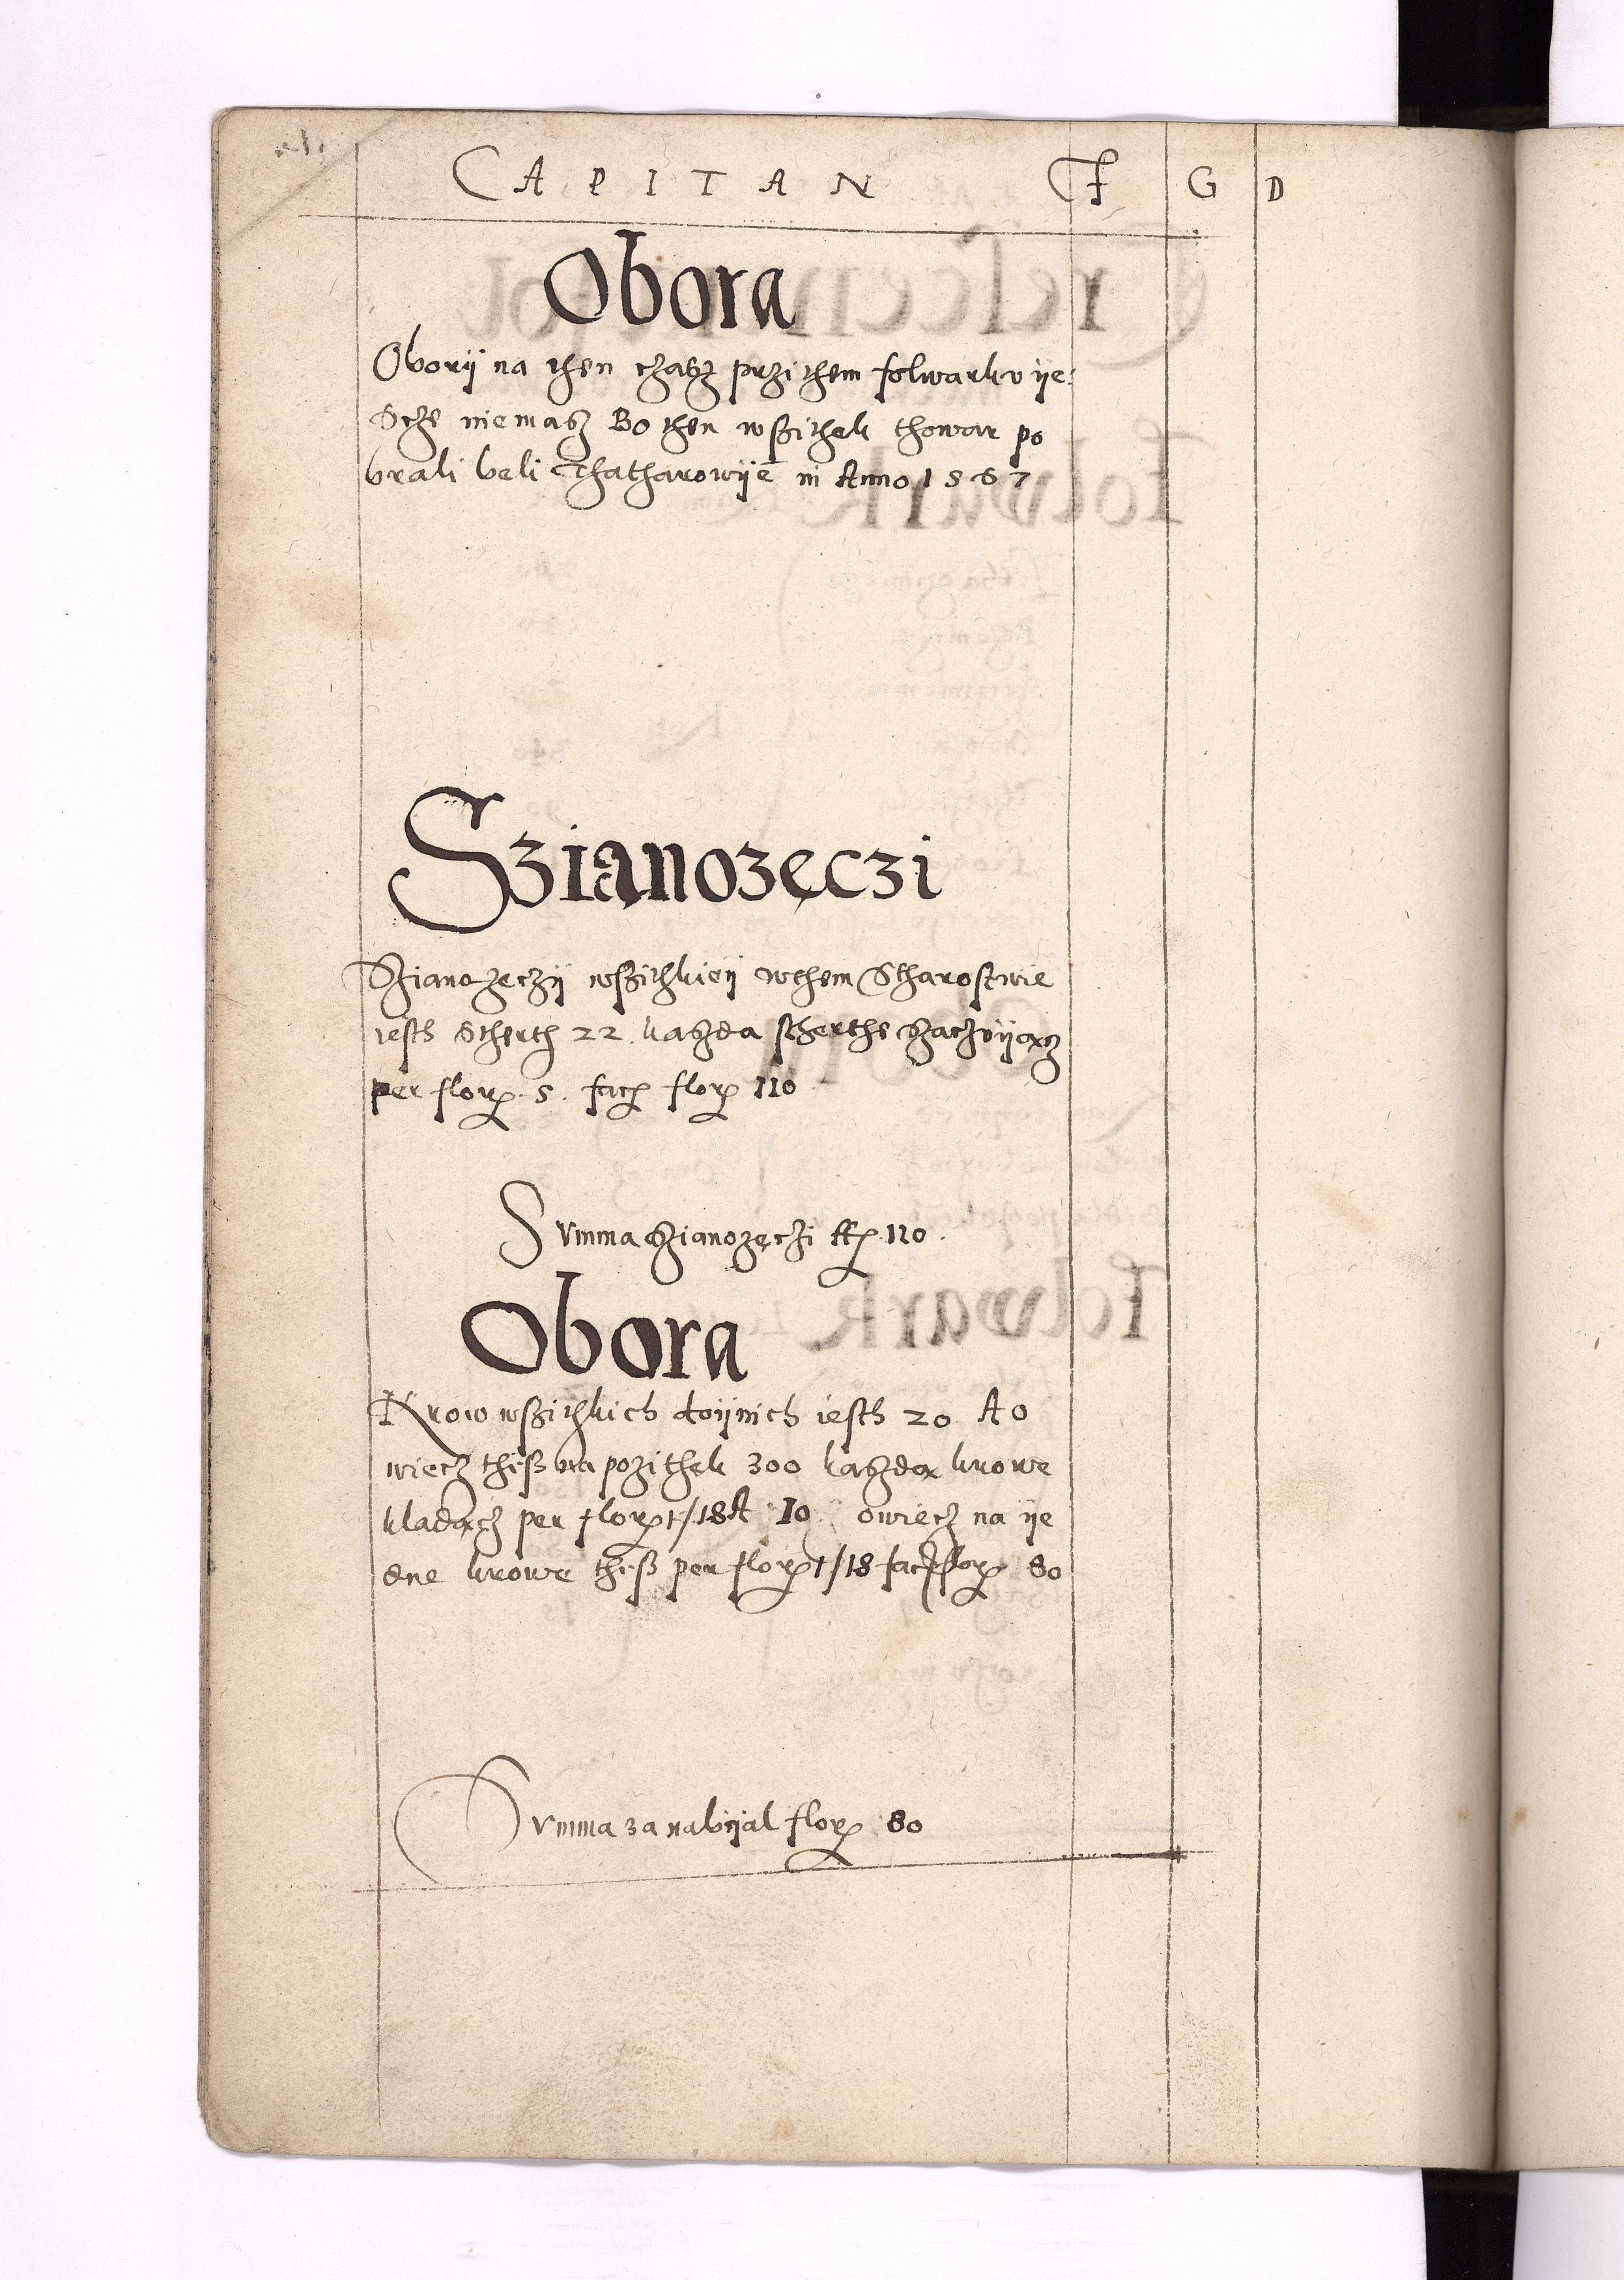 CAPITAN F G D
Obora
Oborÿ na then czasz przithem folwarkv ÿe:
Scze niemasz Bo then wszithek thowar po
brali beli Thatharowÿe in Anno 1567
Szianozęczi
Szianozęczÿ wszithkieÿ wthem Stharostwie
iesth Stherth 22. kaszda stherthe szaczvÿącz
per flor. 5. fac. flor. 110
Svmma szianozęczi ff. 110.
Obora
Krow wszithkich doÿnich iesth 20 A o
wiecz thesz na pozithek 300 kaszdą krowe
kladącz per flor. 1/18 A 10 owiecz na ÿe
dne krowe thesz per flor. 1/18 facit flor. 80
Svmma za nabÿal flor. 80